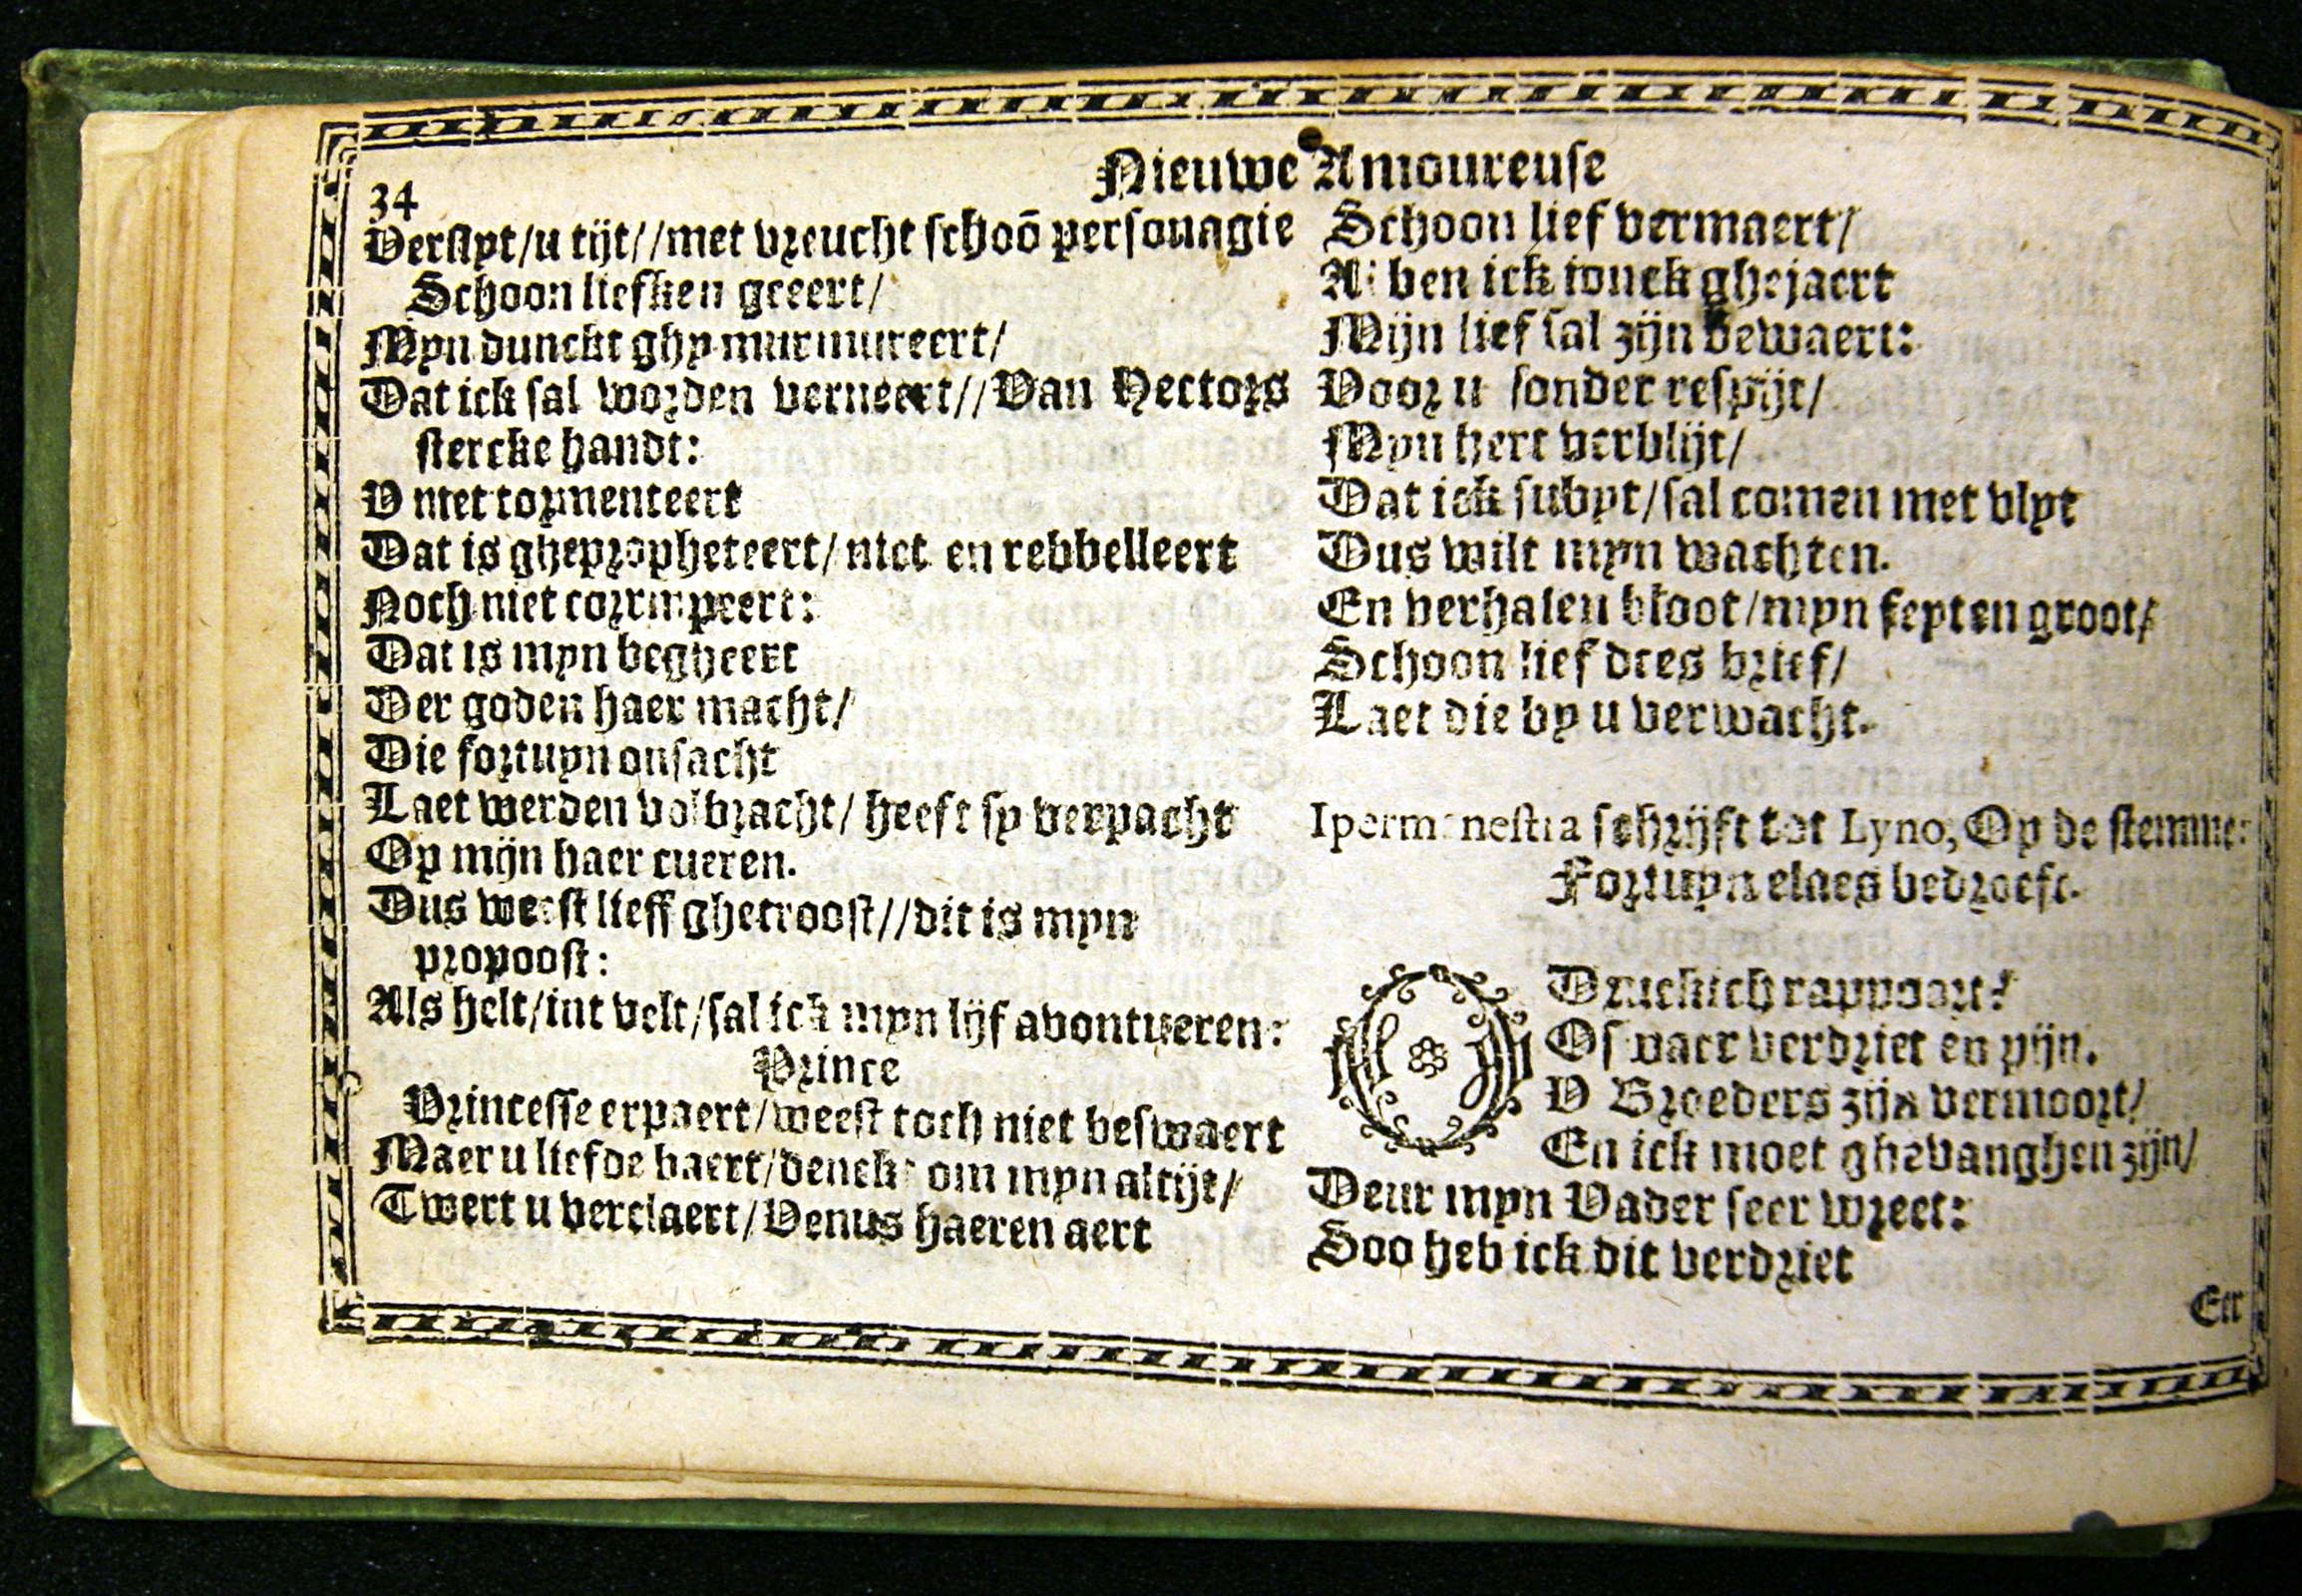 34
Nieuwe Amoureuse
Verslyt/u tijt//met vreucht schoō personagie
Schoon liefken geeert/
Myn dunckt ghy murmureert/
Dat ick sal worden verneert//Van Hectors
stercke handt:
V niet tormenteert
Dat is ghepropheteert/niet en rebbelleert
Noch niet corrumpeert:
Dat is myn begheert
Der goden haer macht/
Die fortuyn onsacht
Laet werden volbracht/ heeft sy verpacht
Op mijn haer cueren.
Dus weest lieff ghetroost//dit is myn
propoost:
Als helt/int velt/sal ick myn lijf avontueren:
Prince
Princesse eerpaert/weest toch niet beswaert
Maer u liefde baert/denckt om myn altijt/
Twert u verclaert/Venus haeren aert
Schoon lief vermaert/
Al ben ick jonck ghejaert
Mijn lief sal zijn bewaert:
Voor u sonder respijt/
Myn hert verblijt/
Dat ick subyt/sal comen met vlyt
Dus wilt myn wachten.
En verhalen bloot/myn feyten groot/
Schoon lief dees brief/
Laet die by u verwacht.
Ipermenestra schrijft tot Lyno, Op de stemme:
Fortuyn elaes bedroeft.
O Druckich rappoort!
Of naer verdriet en pijn.
V Broeders zijn vermoort/
En ick moet ghevanghen zijn/
Deur myn Vader seer wreet:
Soo heb ick dit verdriet